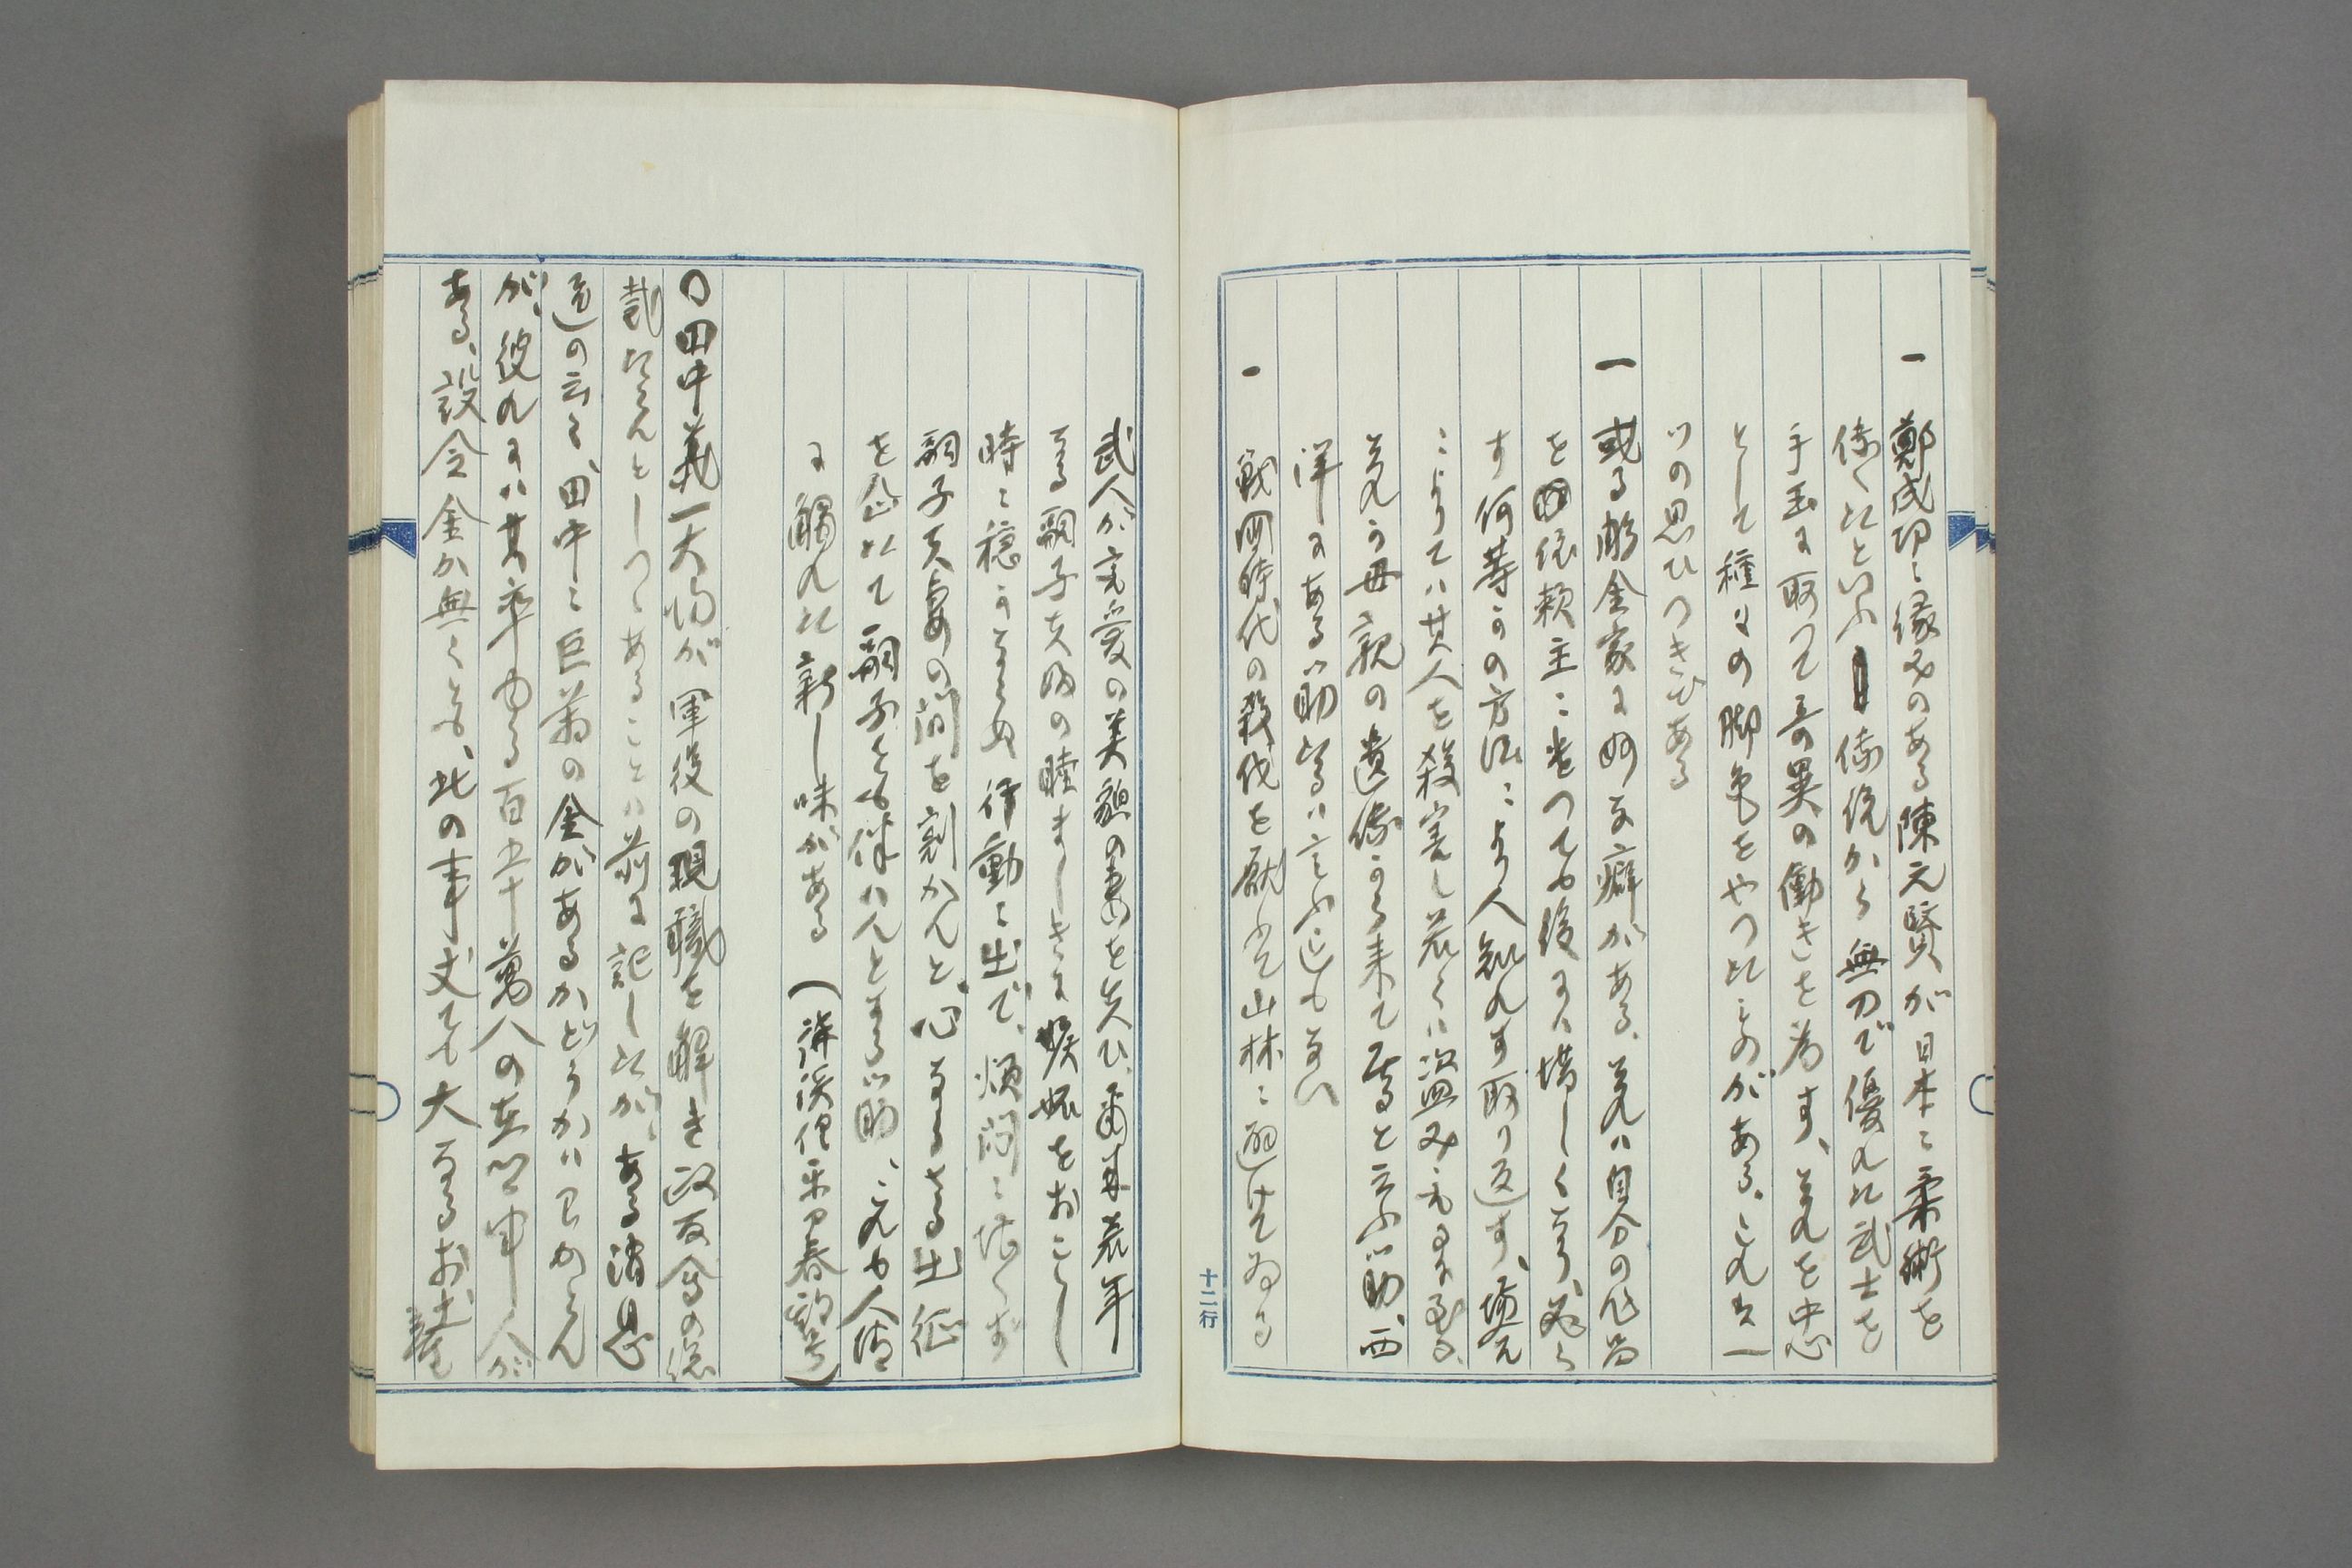 一 鄭成功に縁故のある陳元贇が日本に柔術を
傳へたといふ傳説から無刀で優れた武士を
手玉に取つて奇異の働きを為す、それを中心
として種々の脚色をやつたものがある、これ又一
ツの思ひつきである
一 或る彫金家に妙な癖がある、それは自分の作品
を依頼主に売つても後には惜しくなり、必ら
ず何等かの方法により人知れず取り返す、場合
によりては其人を殺害し若くは盗みもするに至る、
それが母親の遺傳から来て居ると云ふ筋、西
洋にある筋なるは言ふ迄もない
一 戦国時代の殺伐を厭ふて山林に遁せてゐる
武人が寵愛の美貌の妻を失ひ、爾来若年
なる嗣子夫婦の睦ましきに嫉妬をおこし
時に穏かならぬ行動に出で、煩悶に堪へず
嗣子夫妻の間を割かんと、心なくも出征
を企れて嗣子を伴はんとする筋、これも人情
に触れた新し味がある
〇田中義一大将が軍後の現職を解き政友会の総
裁たらんとしつゝあることは前に記したが、ある消息
通の云く、田中に巨萬の金があるかどうかは分からん
が、彼れには其率ゐる百五十萬人の在郷軍人が
ある、設令金か無くとも、此の事丈ても大なるお土産
十二行